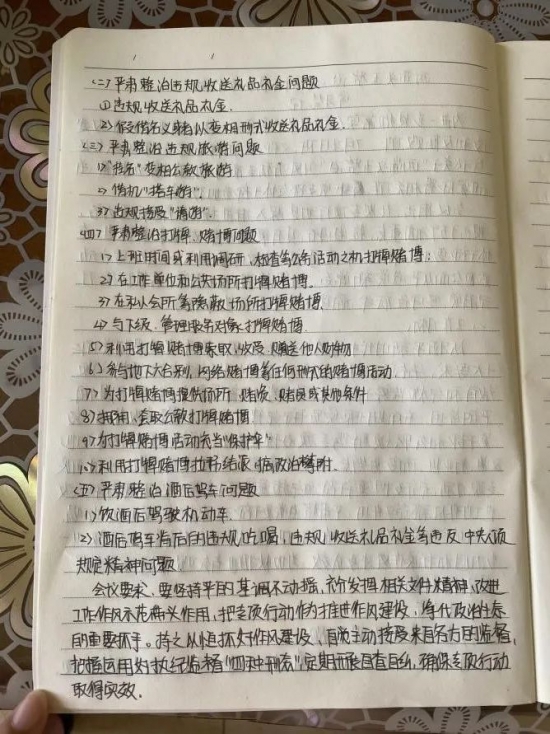 <二>严肃整治违规收送礼品礼金问题
1)违规收送礼品礼金.
2)假借名义或者以变相形式收送礼品礼金.
<三>严肃整治违规旅游问题
1)"节名"变相公款旅游
2)借机"搭车游".
3)违规接受"请游".
<四>严肃整治打牌、赌博问题
1)上班时间或利用调研、检查等公务活动之机打牌赌博;
2)在工作单位和公共场所打牌赌博.
3)在私人会所等隐蔽场所打牌赌博.
4)与下级、管理服务对象打牌赌博
5)利用打牌赌博索取、收受、赠送他人财物
6)参与地下六合彩、网络赌博等任何形式的赌博活动.
7)为打牌赌博提供场所、赌资、赌具或其他条件
8)挪用、套取公款打牌赌博
9)为打牌赌博活动充当"保护伞"
10)利用打牌赌博拉帮结派、搞政治攀附.
<五>严肃整治酒后驾车问题
1)饮酒后驾驶机动车.
2)酒后驾车背后的违规吃喝,违规收送礼品礼金等违反中央八项
规定精神问题.
会议要求,要坚持严的基调不动摇,充分发挥相关文件精神,改进
工作作风示范带头作用,把专项行动作为推进作风建设,净化政治生态
的重要抓手。持之以恒抓好作风建设,自觉主动接受来自各方的监督,
把握运用好执纪监督"四种形态"定期开展自查自纠,确保专项行动
取得实效.